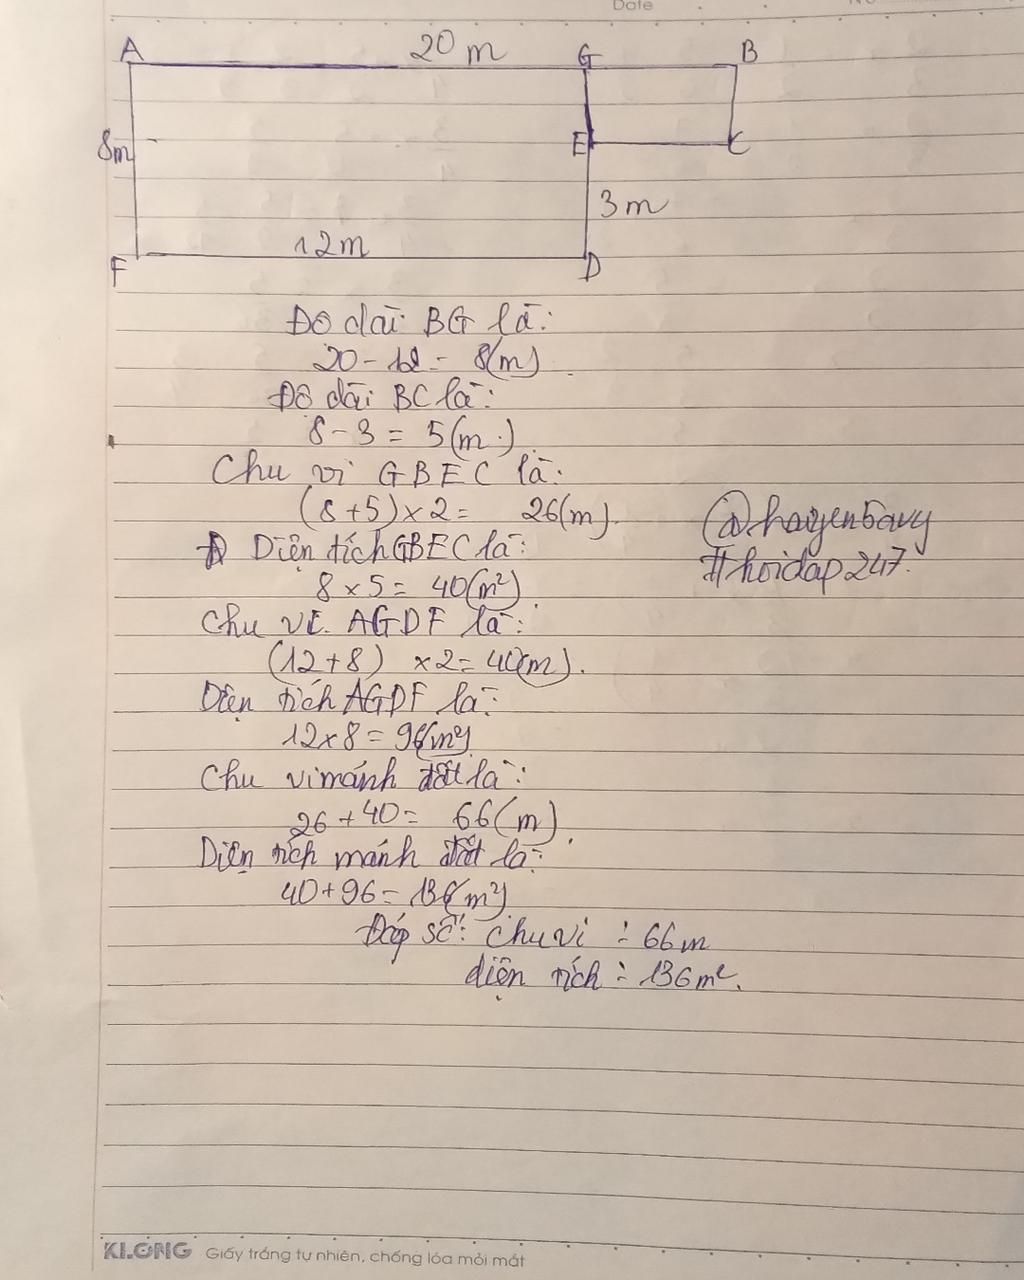 Date
A 20 m G B
8m E C
3m
12m
F D
Độ dài BG là:
20 - 12 = 8(m)
Độ dài BC là:
8 - 3 = 5(m)
Chu vi GBEC là:
(8+5) x 2 = 26(m).
Diện tích GBEC là:
8 x 5 = 40(m²)
Chu vi AGDF là:
(12+8) x 2 = 40(m).
Diện tích AGDF là:
12 x 8 = 96(m²)
Chu vi mảnh đất là:
26 + 40 = 66(m)
Diện tích mảnh đất là:
40 + 96 = 136(m²)
Đáp số: chu vi: 66m
diện tích: 136m².
#hoidap247.
KLONG Giấy trắng tự nhiên, chống lóa mỏi mắt